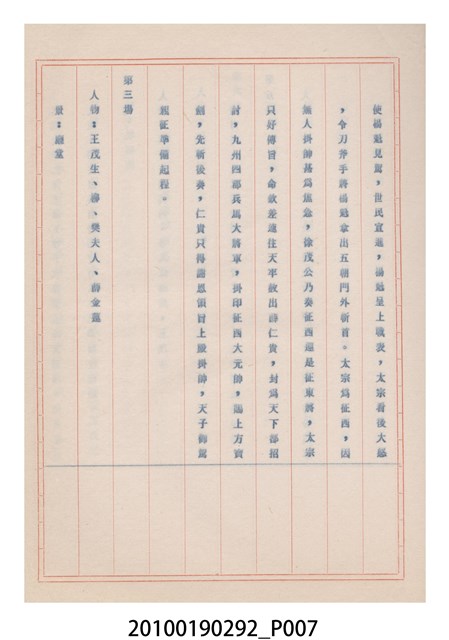 使楊勉見駕，世民宣進，楊勉呈上戰表，太宗看後大怒
，令刀斧手將楊勉拿出五朝門外斬首。太宗為征西，因
無人掛帥甚為焦急，徐茂公乃奏征西還是征東將，太宗
只好傳旨，命欽差速往天牢赦出薛仁貴，封為天下都招
討，九州四郡兵馬大將軍，掛印征西大元帥，賜上方寶
劍，先斬後奏，仁貴只得謝恩領旨上殿掛帥，天子御駕
親征準備起程。
第三場
人物：王茂生、毛、樊夫人、薛金蓮
景：廳堂
20100190292_P007